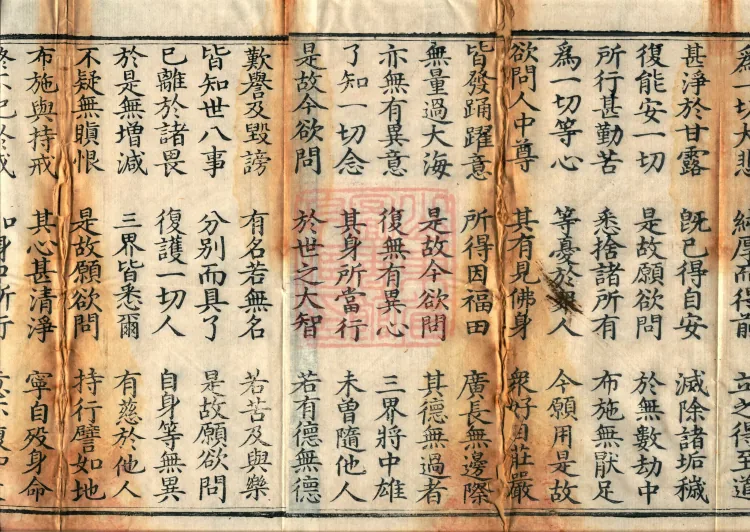 為一切大悲 經序而行前 立之得至道
甚淨於甘露 既已得自安 滅除諸垢穢
復能安一切 是故願欲問 於無數劫中
所行甚勤苦 悉捨諸所有 布施無猒足
為一切等心 等憂於衆人 今願用是故
欲問人中尊 其有見佛身 衆好自莊嚴
皆發踊躍意 所得因福田 廣長無邊際
無量過大海 是故今欲問 其德無過者
亦無有異意 復無有異心 三界將中雄
了知一切念 其身所當行 未曾隨他人
是故今欲問 於世之大智 若有德無德
歎譽及毀謗 有名若無名 若苦及與樂
皆知世八事 分別而具了 是故願欲問
已離於諸畏 復護一切人 自身等無異
於是無增減 三界皆悉爾 有慈於他人
不疑無瞋恨 是故願欲問 持行譬如地
布施與持戒 其心甚清淨 寧自歿身命